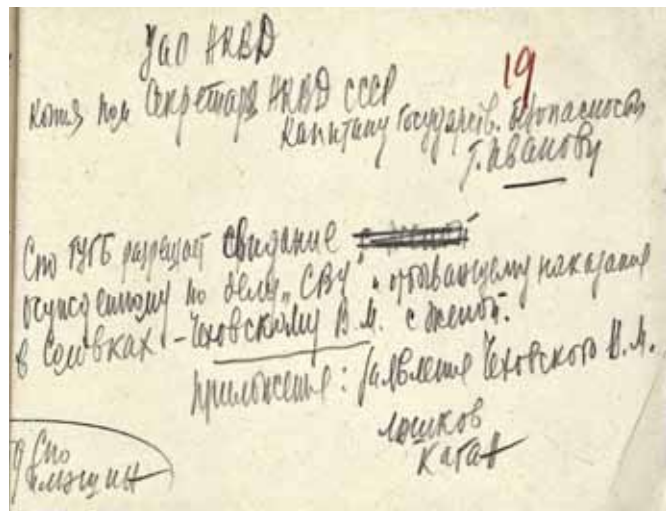 УАО НКВД
19
Копия пом Секретаря НКВД СССР
Капитану Государств. Безопасности
т. Иванову
Спо ГУГБ разрешает свидание
осужденному по делу „СВУ", отбывающему наказание
в Соловках - Чеховскому В.М. с женой.
Приложение: Заявление Чеховского В.М.
Люшков
Каган
Спо